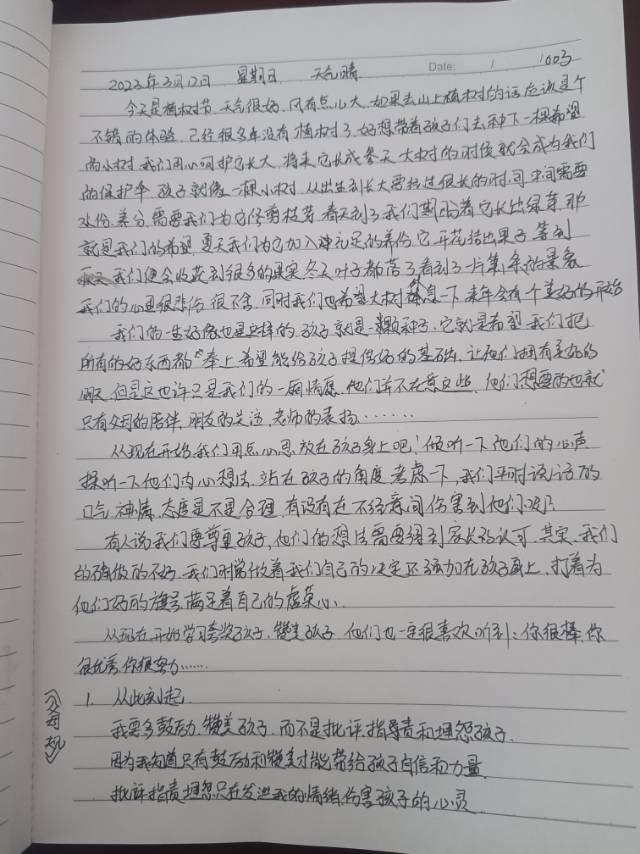 Date: / 1003
2023年3月12日 星期日 天气晴
今天是植树节,天气很好,风有点小大,如果去山上植树的话应该是个
不错的体验,已经很多年没有植树了,好想带着孩子们去种下一棵希望
的小树,我们用心呵护它长大,将来它长成参天大树的时候就会成为我们
的保护伞,孩子就像一棵小树,从出生到长大要经过很长的时间,中间需要
水份、养分,需要我们为它修剪枝芽,春天到了,我们期盼着它长出绿芽,那
就是我们的希望,夏天我们为它加入冲充足的养份,它开花结出果子,等到
我们便会收获到很多的果实,冬天叶子都落了,看到了一片萧条的景象
我们的心里很悲伤,很不舍,同时我们也希望大树休息一下,来年会有个美好的开始
我们的一生好像也是这样的,孩子就是一颗种子,它就是希望,我们把
所有的好东西都奉上,希望能给孩子提供好的基础,让他们拥有美好的
明天,但是这也许只是我们的一厢情愿,他们并不在意这些,他们想要的也就
只有父母的陪伴,朋友的关注,老师的表扬……
从现在开始,我们用点心思放在孩子身上吧!倾听一下他们的心声
探听一下他们内心想法,站在孩子的角度考虑一下,我们平时说话的
口气、神情、态度是不是合理,有没有在不经意间伤害到他们呢?
有人说我们要尊重孩子,他们的想法需要得到家长的认可,其实,我们
的确做的不好,我们时常做着我们自己的决定还强加在孩子身上,打着为
他们好的旗号满足着自己的虚荣心.
从现在开始学习夸奖孩子,赞美孩子,他们也一定很喜欢听到:你很棒,你
很优秀,你很努力……
1. 从此刻起
我要多鼓励、赞美孩子,而不是批评指责和埋怨孩子.
因为我知道只有鼓励和赞美才能带给孩子自信和力量
批评指责埋怨只在发泄我的情绪,伤害孩子的心灵